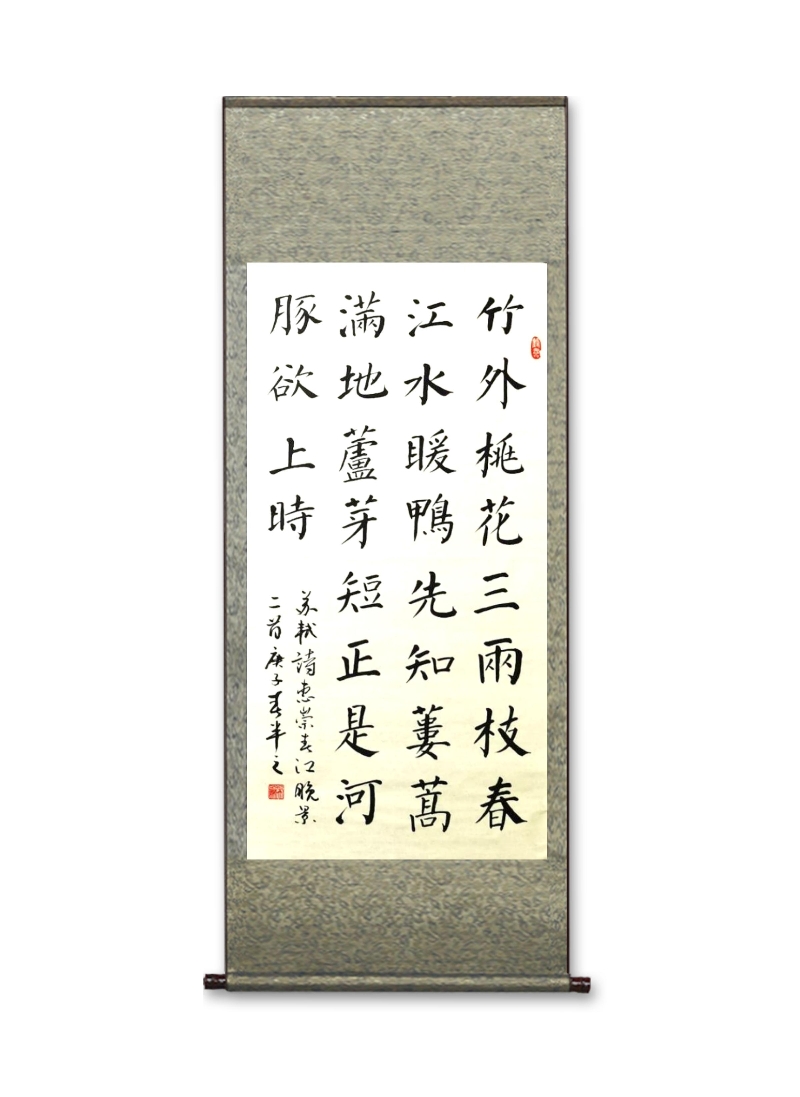 竹外桃花三兩枝春
江水暖鴨先知蔞蒿
滿地蘆芽短正是河
豚欲上時
苏軾詩惠崇春江晚景
二首庚子春半之